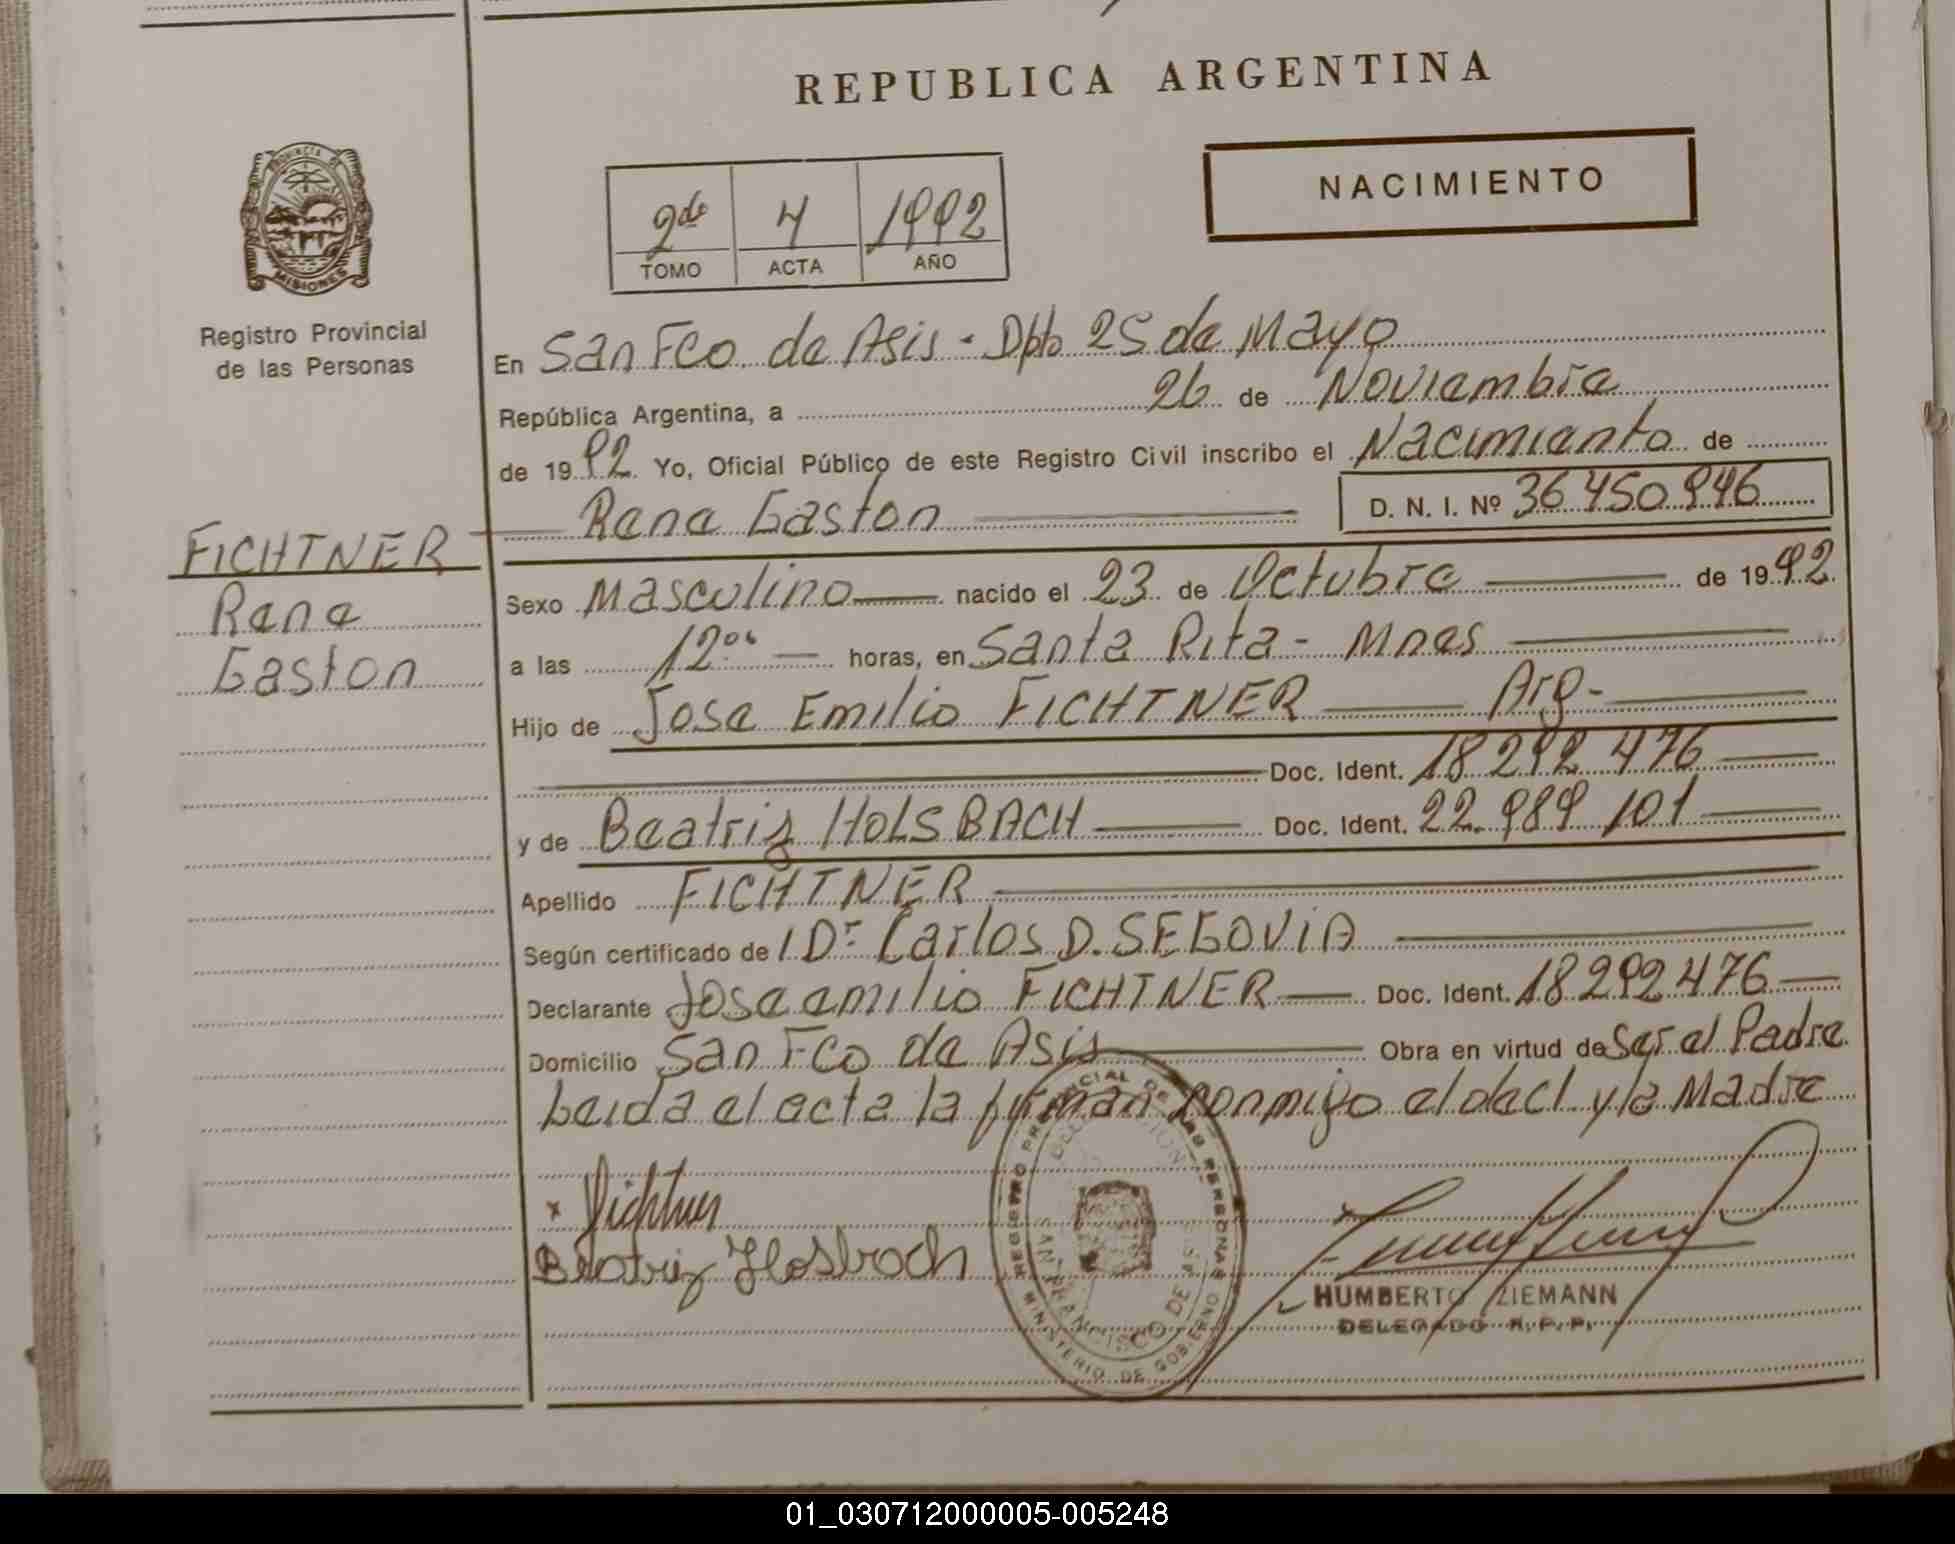 REPUBLICA ARGENTINA
PROVINCIA DE
MISIONES
Registro Provincial
de las Personas
2do 4 1992
TOMO ACTA AÑO
NACIMIENTO
En San Fco de Asis - Dpto 25 de Mayo
República Argentina, a 26 de Noviembre
de 1992. Yo, Oficial Público de este Registro Civil inscribo el Nacimiento de
Rene Gaston D. N. I. Nº 36.450.946
FICHTNER
Rene
Gaston
Sexo Masculino nacido el 23 de Octubre de 1992.
a las 12oo horas, en Santa Rita - Mnes
Hijo de Jose Emilio FICHTNER Arg-
Doc. Ident. 18.292.476
y de Beatriz HOLSBACH Doc. Ident. 22.989.101
Apellido FICHTNER
Según certificado de / Dr. Carlos D. SEGOVIA
Declarante Jose emilio FICHTNER Doc. Ident. 18.292.476
Domicilio San Fco de Asis Obra en virtud de Ser el Padre
Leida el acta la firman conmigo el decl y la Madre
x Fichtner
Beatriz Hosbach
REGISTRO PROVINCIAL DE LAS PERSONAS
MINISTERIO DE GOBIERNO
DELEGACION
SAN FRANCISCO DE ASIS
HUMBERTO ZIEMANN
DELEGADO R. P. P.
01_030712000005-005248